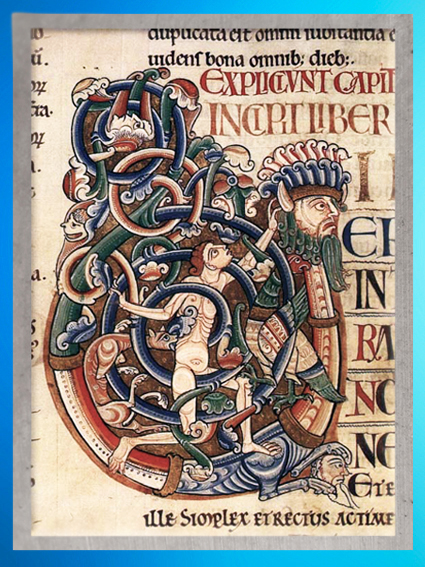 duplicata est omni substantia e
uidens bona omnib; dieb;.
EXPLICIVNT CAPIT
INCIPT LIBER
I
ER
IN
RA
NO
NE
ET E
ILLE SIMPLEX ET RECTUS AC TIME